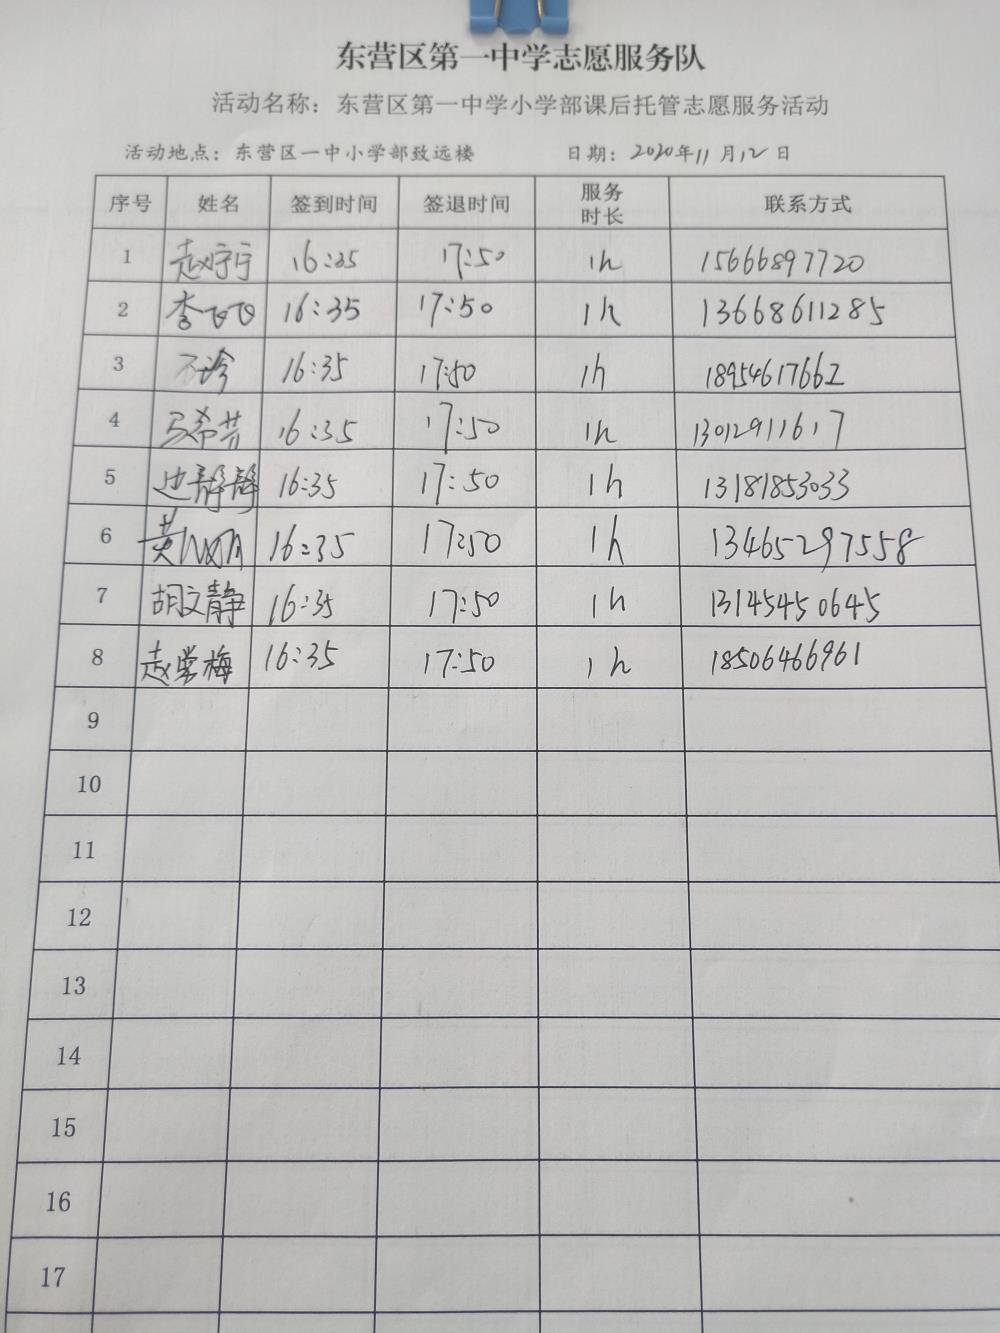 东营区第一中学志愿服务队
活动名称：东营区第一中学小学部课后托管志愿服务活动
活动地点：东营区一中小学部致远楼 日期：2020年11月12日
序号 姓名 签到时间 签退时间 服务时长 联系方式
1 赵宁宁 16:35 17:50 1h 15666897720
2 李飞飞 16:35 17:50 1h 13668611285
3 16:35 17:50 1h 18954617662
4 马希芳 16:35 17:50 1h 13012911617
5 边静静 16:35 17:50 1h 13181853033
6 黄 16:35 17:50 1h 13465297558
7 胡文静 16:35 17:50 1h 13145450645
8 赵学梅 16:35 17:50 1h 18506466961
9
10
11
12
13
14
15
16
17